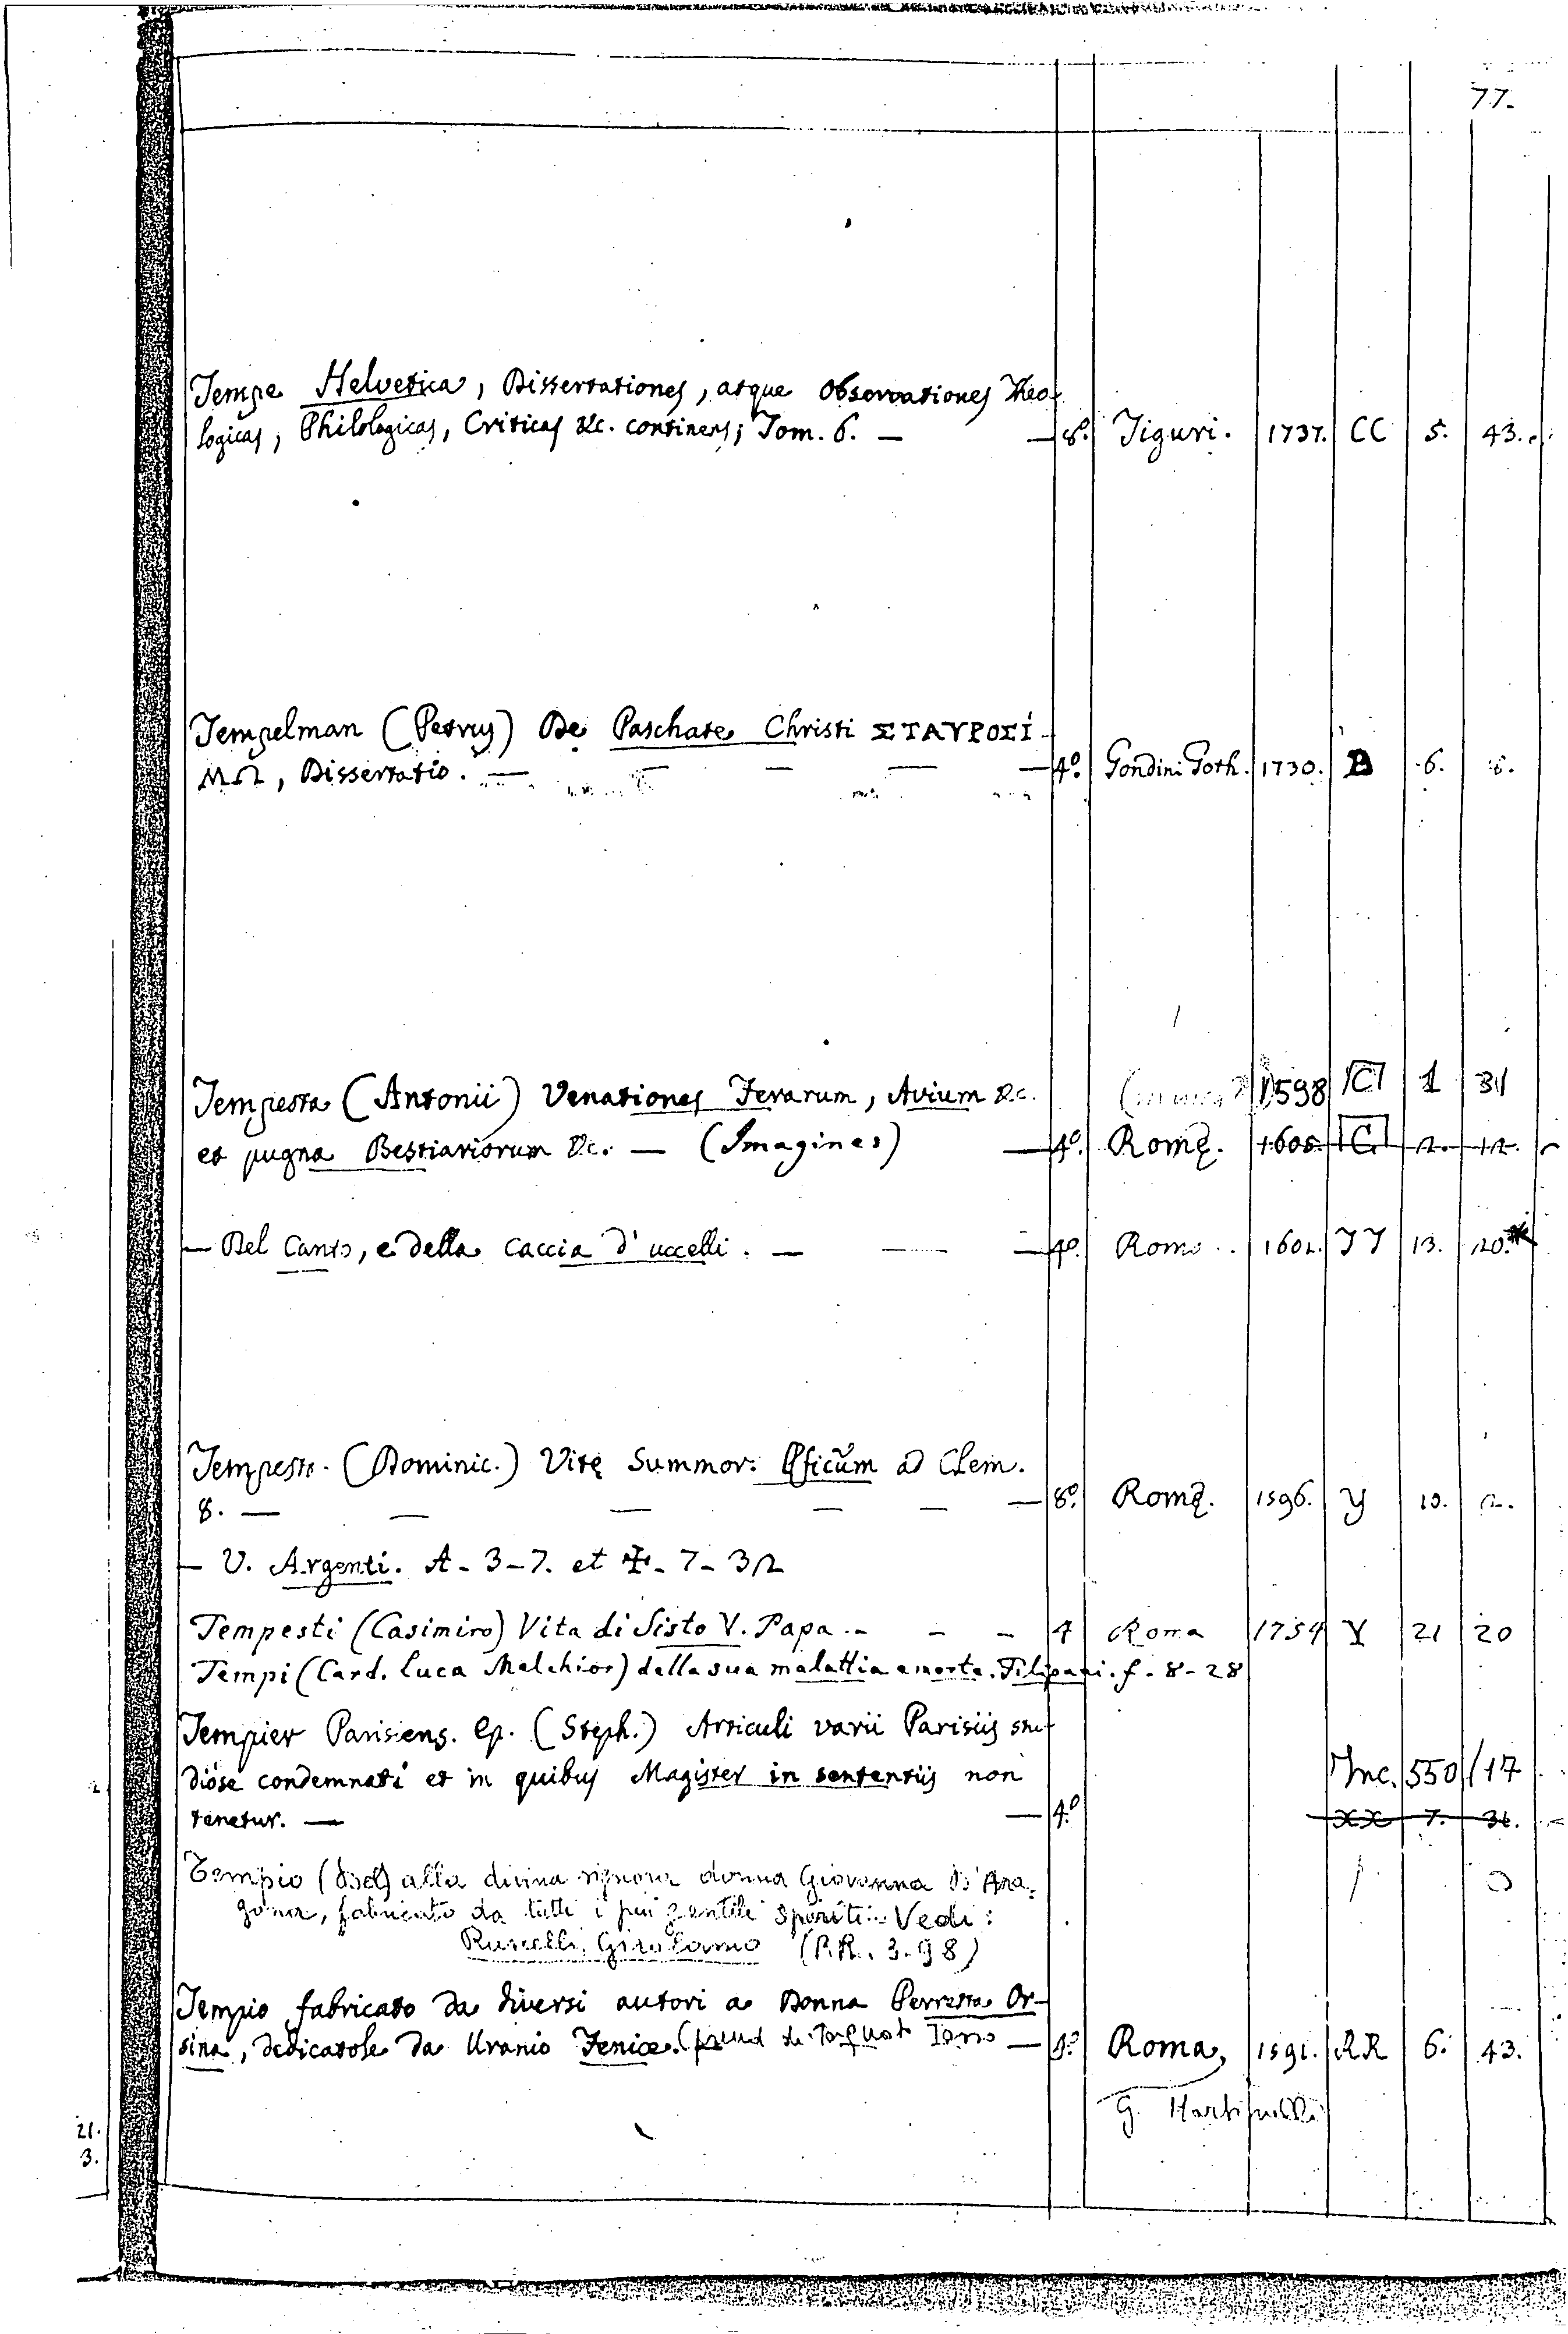 77.
Tempe Helvetica, Dissertationes, atque Observationes Theo-
logicas, Philologicas, Criticas &c. continens; Tom. 6. — — 8.º Tiguri. 1737. CC 5. 43.
Tempelman (Petrus) De Paschate Christi ΣΤΑΥΡΟΣΊ-
ΜΩ, Dissertatio. — — — — — 4º. Londini Goth. 1730. B 6.
Tempesta (Antonii) Venationes Ferarum, Avium &c. 1598 C 1 31
et pugna Bestiariorum &c. — (Imagines) — 4º. Romę. 1605. C. 12. 12.
— Del Canto, e della caccia d'uccelli. — — — 4º. Roma 1602. TT 13. 20.
Tempesta. (Dominic.) Vitę Summor. Pficum ad Clem.
8. — — — — — — 8º. Romę. 1596. Y 10. 2.
— V. Argenti. A - 3 - 7. et ✠ - 7 - 32
Tempesti (Casimiro) Vita di Sisto V. Papa. - - - 4 Roma 1754 Y 21 20
Tempi (Card. Luca Melchior) della sua malattia e morte. Filipani. f. 8 - 28
Tempier Parisiens. Ep. (Steph.) Articuli varii Parisiis stu-
diose condemnati et in quibus Magister in sententiis non Inc. 550 17
tenetur. — — 4º XX 7. 31.
Tempio (Del) alla divina signora donna Giovanna d'Ara-
gona, fabricato da tutti i più gentili spiriti. Vedi:
Ruscelli, Girolamo (RR. 3. 98)
Tempio fabricato da diversi autori a Donna Perretta Or-
sina, dedicatole da Uranio Fenice. — 4º. Roma, 1591. RR 6. 43.
G. Martinelli
21.
3.